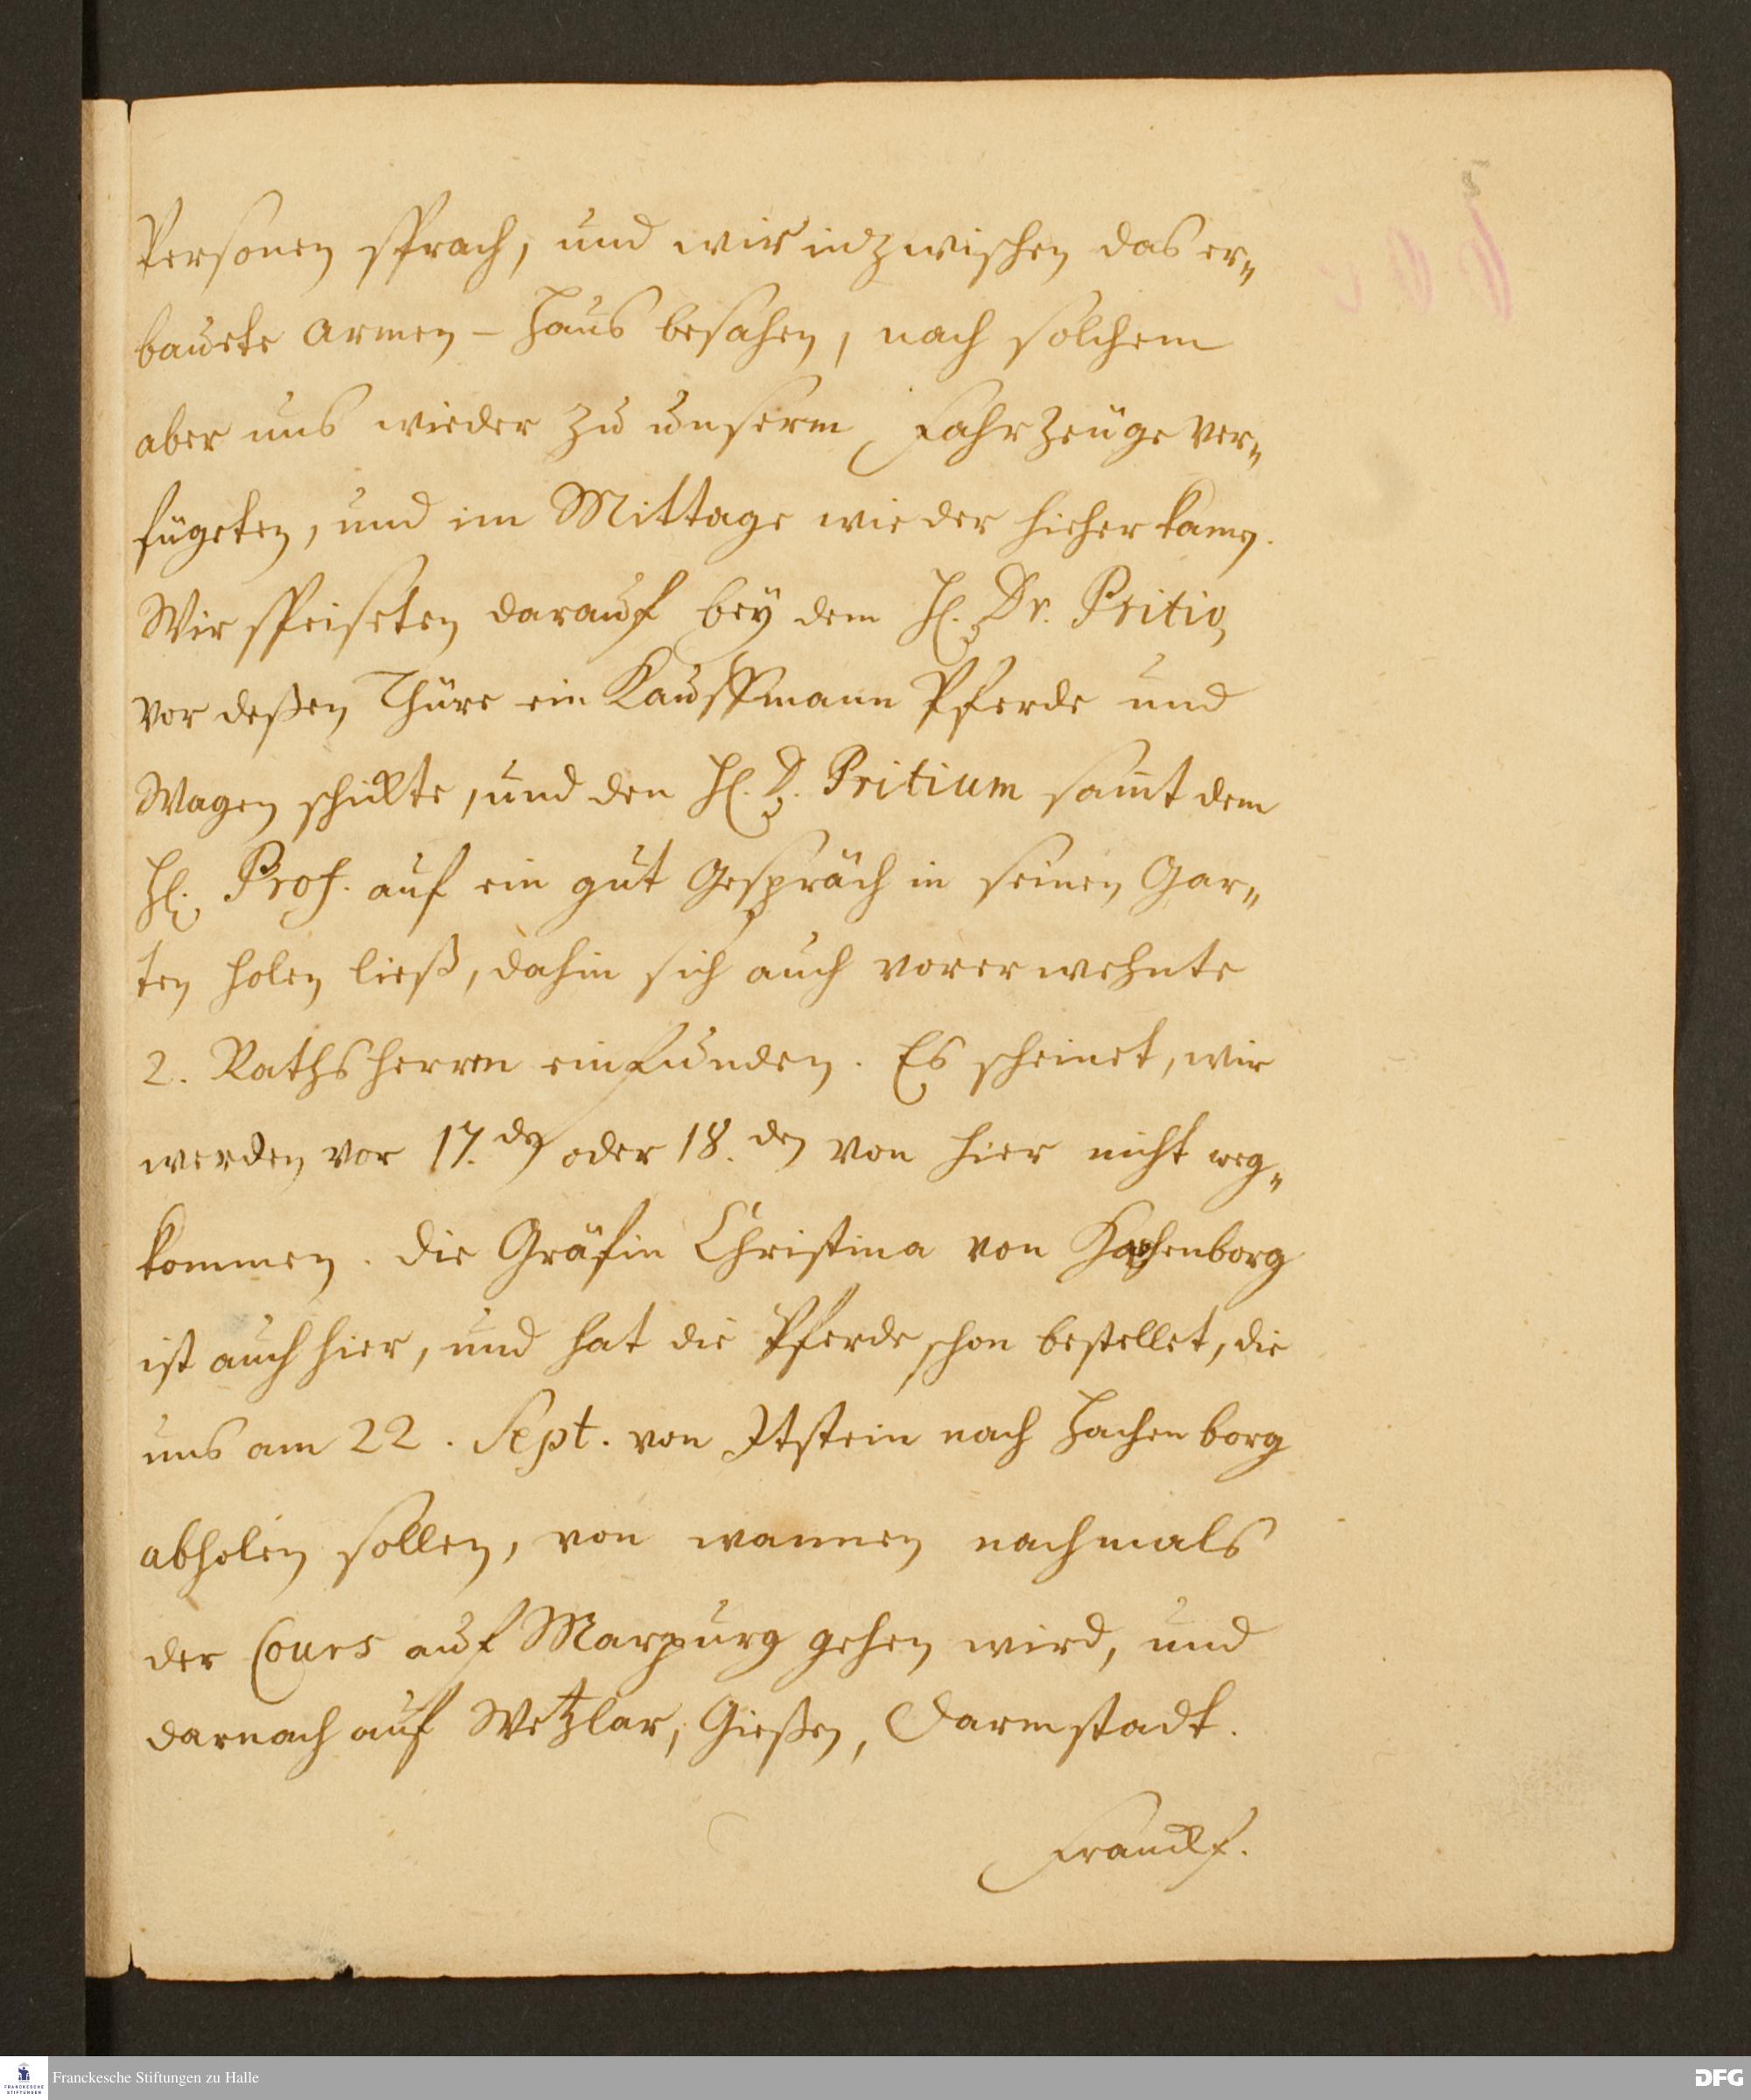 Personen sprach, und wir indzwischen das er„
bauete Armen-Haus besahen, nach solchem
aber uns wieder zu unserm Fahrzeuge ver„
fügeten, und im Mittage wieder hieher kamen.
Wir speiseten darauf bey dem H. Dr. Pritio,
vor deßen Thüre ein Kauffmann Pferde und
Wagen schickte, und den H. D. Pritium sam̅t dem
H. Prof. auf ein gut Gespräch in seinen Gar„
ten holen ließ, dahin sich auch vorerwehnte
2. Rathsherren einfunden. Es scheinet, wir
werden vor 17.den oder 18.den von hier nicht weg„
kommen. Die Gräfin Christina von Hachenborg
ist auch hier, und hat die Pferde schon bestellet, die
uns am 22. Sept. von Itstein nach Hachenborg
abholen sollen, von wannen nachmals
der Cours auf Marpurg gehen wird, und
darnach auf Wetzlar, Gießen, Darmstadt.
Franckf.
Franckesche Stiftungen zu Halle
DFG